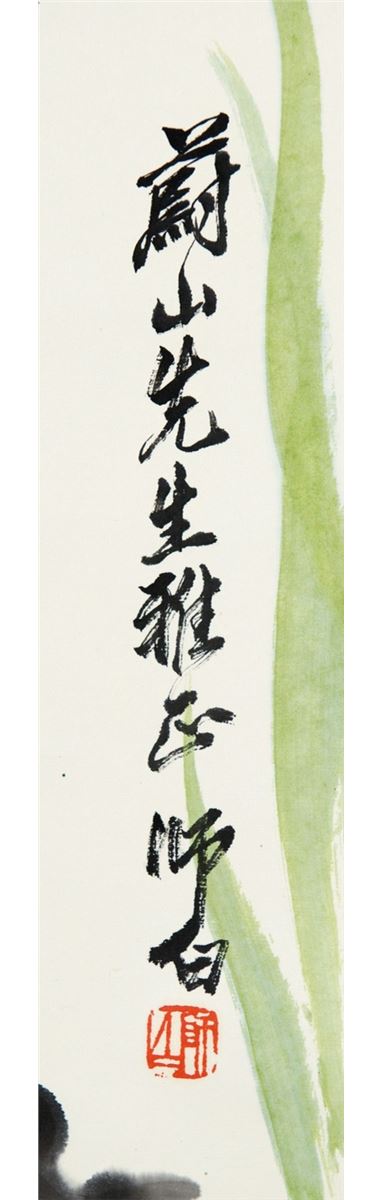 蔚山先生雅正师白